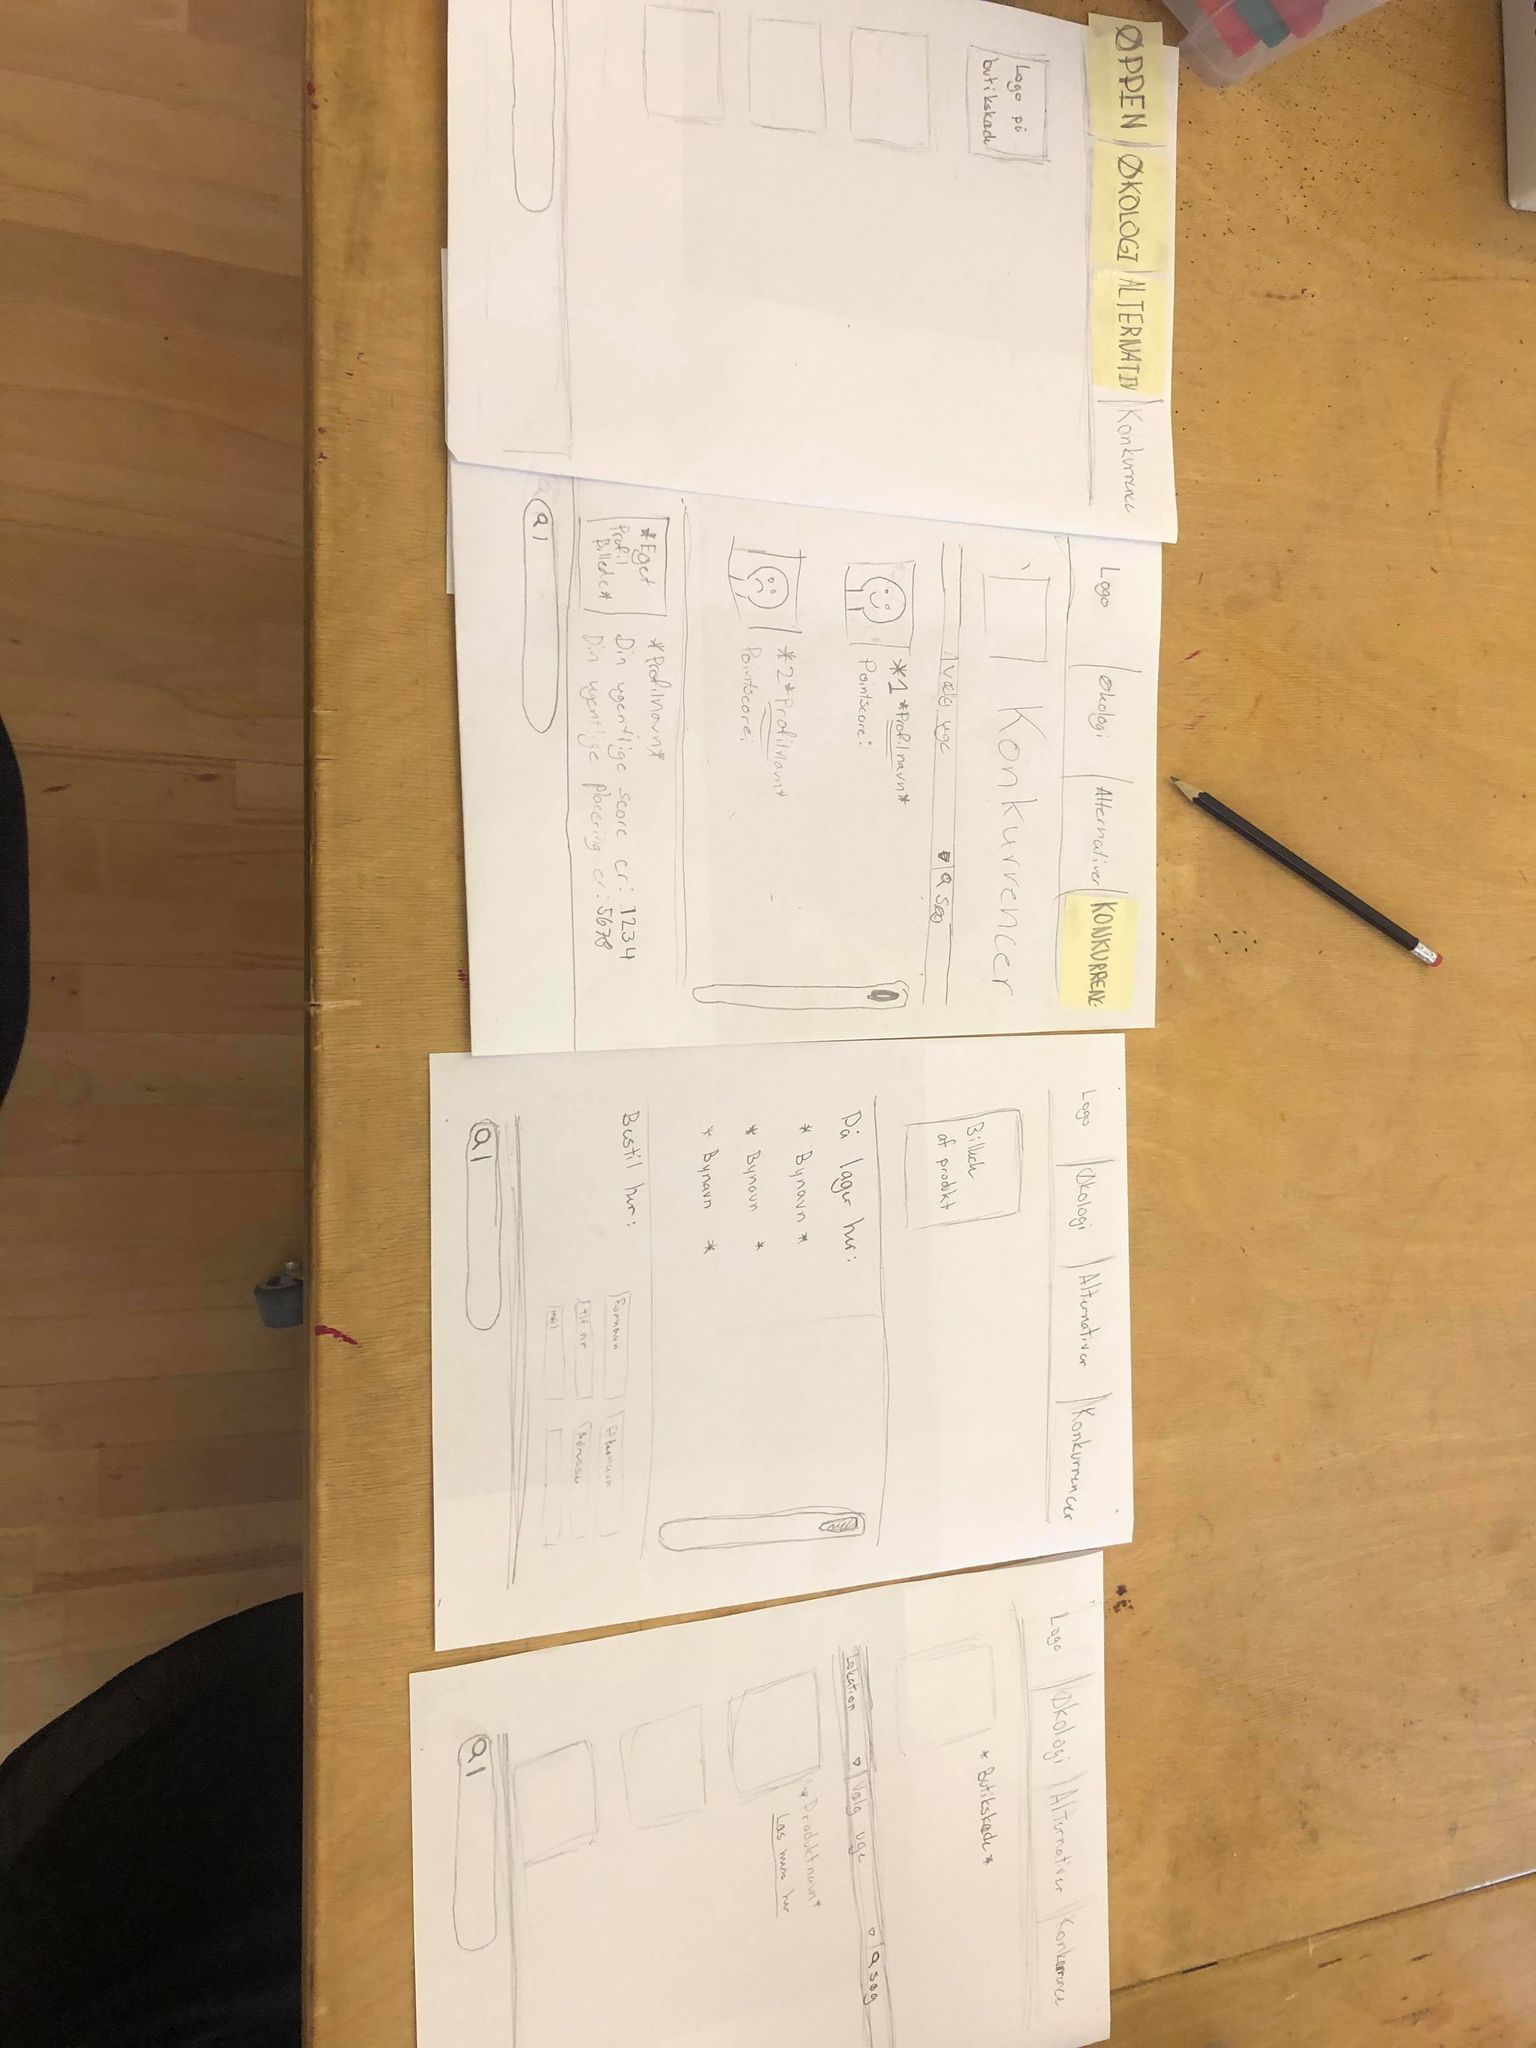 ØPPEN | ØKOLOGI | ALTERNATIV | Konkurrence
Logo på
butikskæde
Logo | Økologi | Alternativer | KONKURRENC
Konkurrencer
Vælg uge | søg
*1 *Profilnavn*
Pointscore:
*2 *Profilnavn*
Pointscore:
*Eget
Profil
Billede*
*Profilnavn*
Din ugentlige score er: 1234
Din ugentlige placering er: 5678
Logo | Økologi | Alternativer | Konkurrencer
Billede
af produkt
På lager her:
* Bynavn *
* Bynavn *
* Bynavn *
Bestil her:
Fornavn | Efternavn
Tlf nr | Adresse
Mail
Logo | Økologi | Alternativer | Konkurrence
*Butikskæde*
Lokation | Vælg uge | søg
*Produktnavn*
Læs mere her